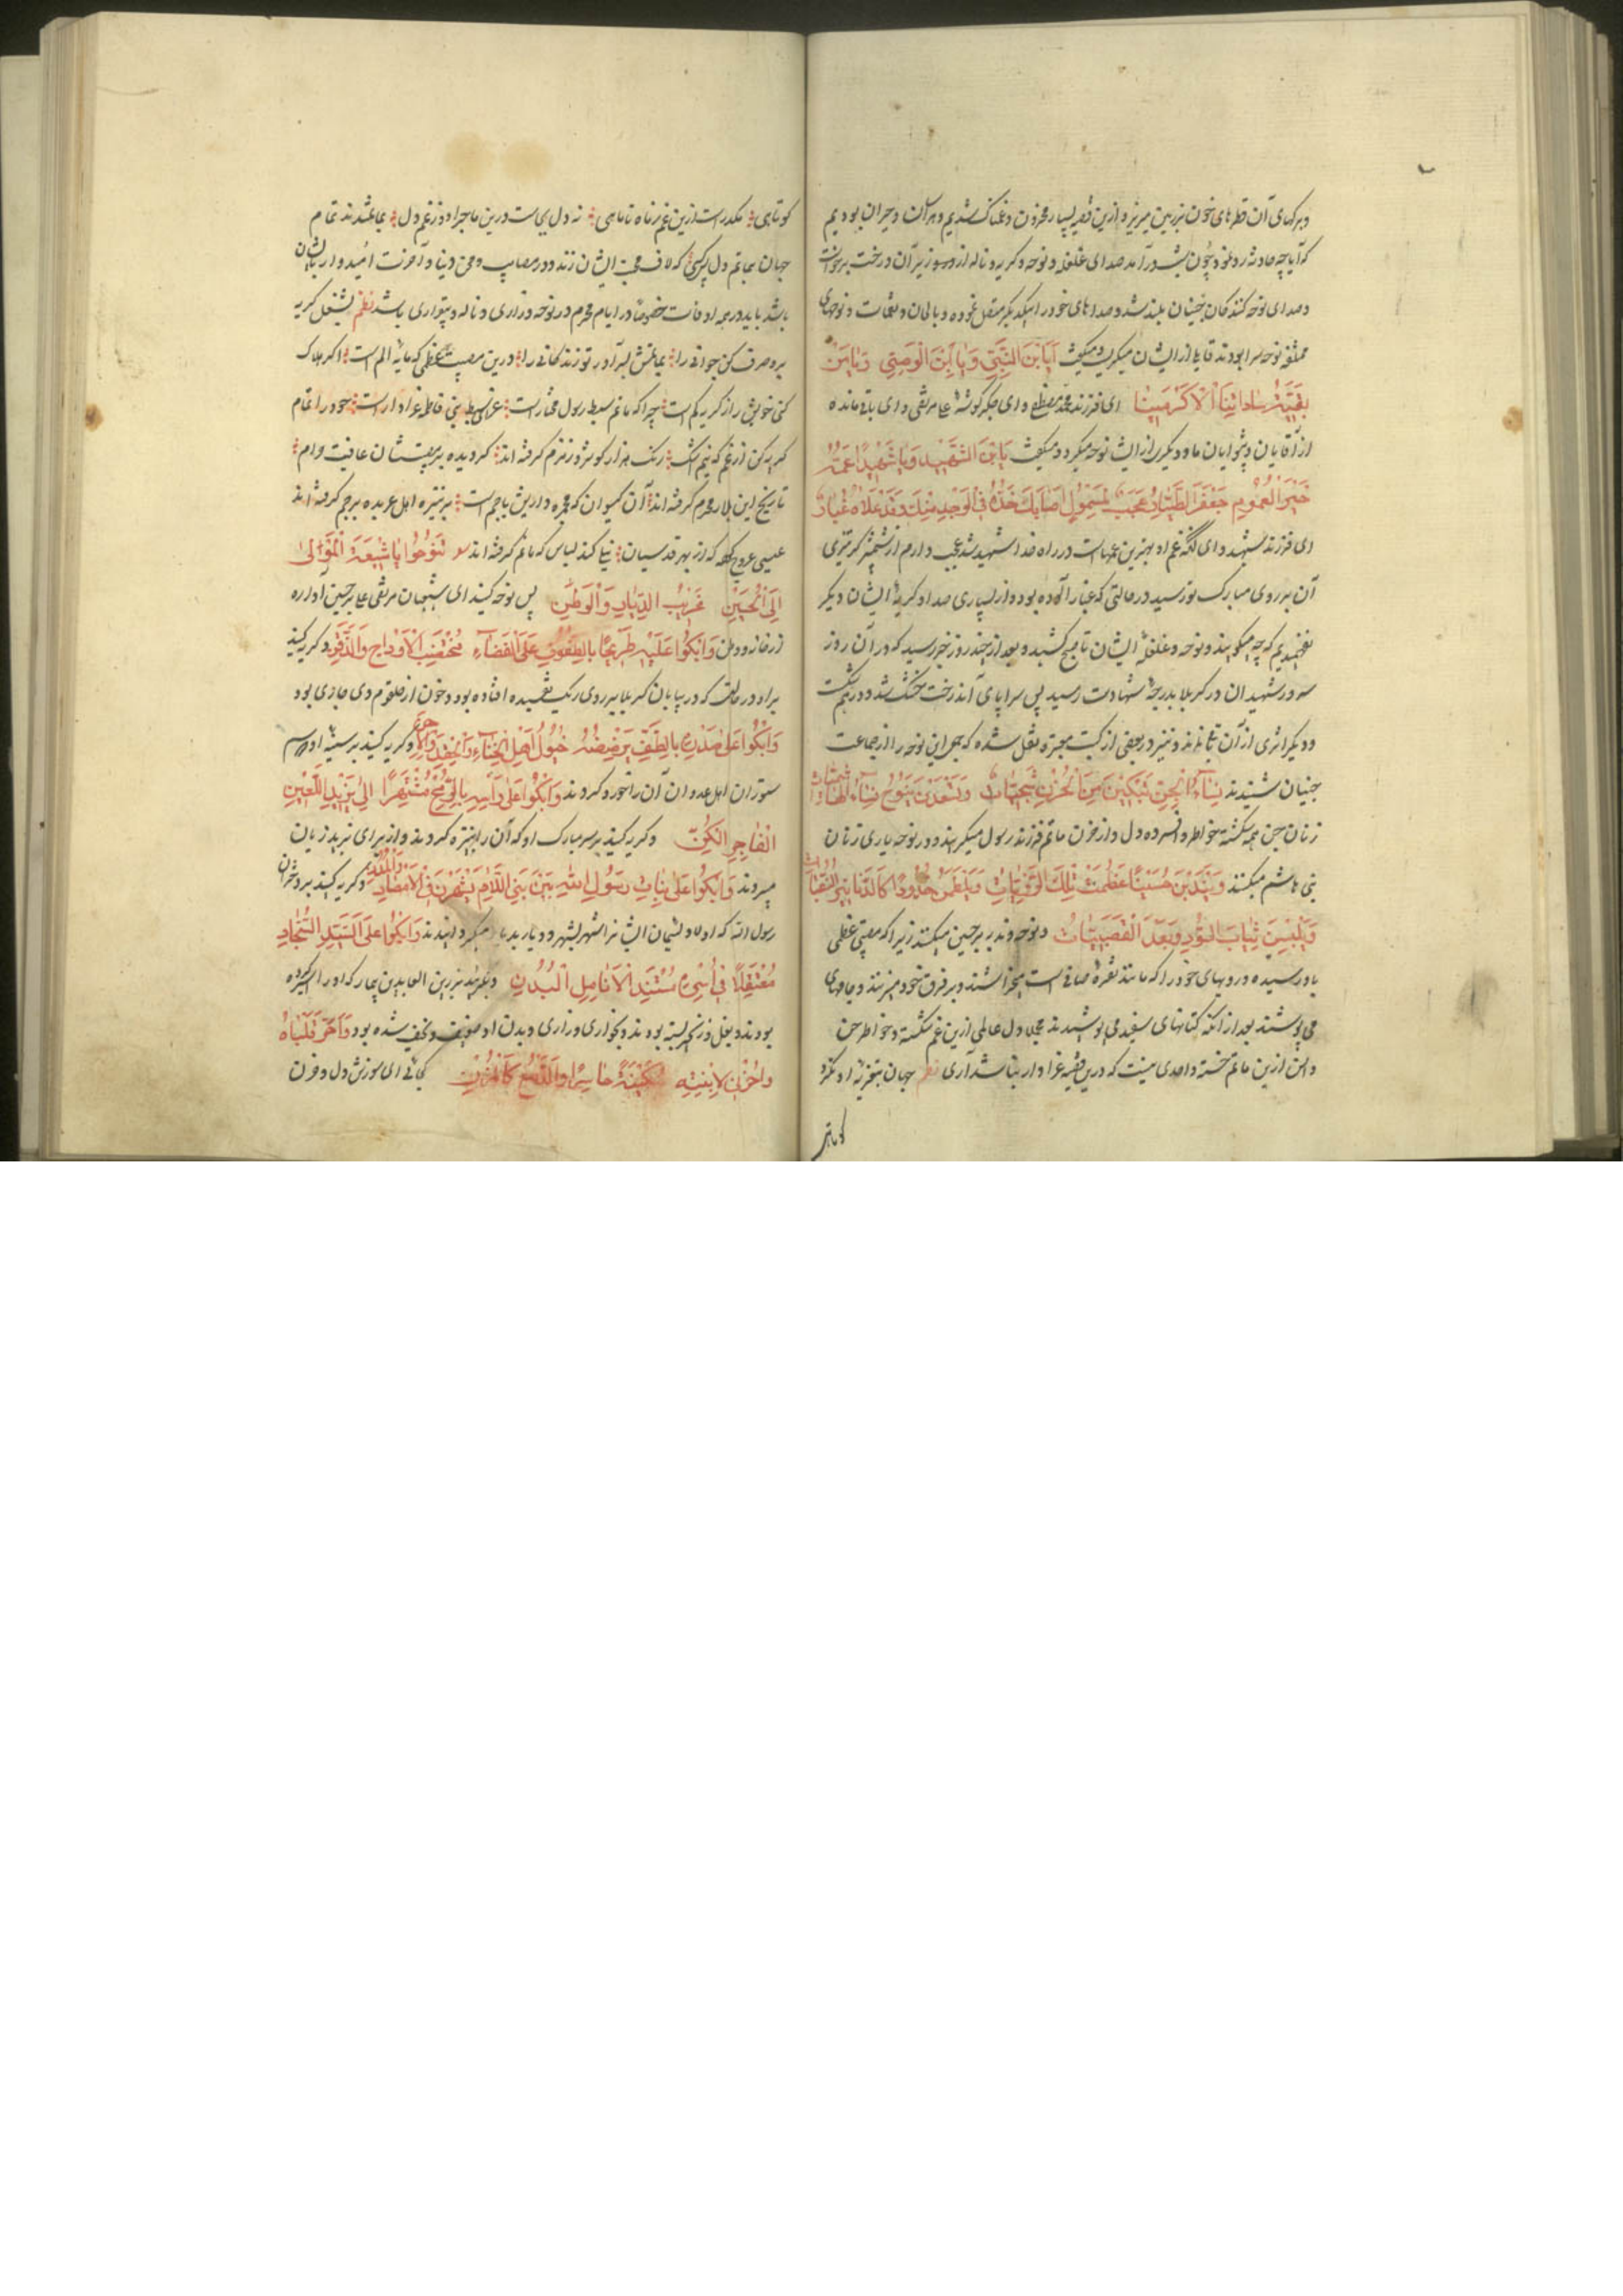 و برگهای آن قطرهای خون بر زمین میریزد و ازین قضیه بسیار محزون و غمناک شدیم و هراسان و حیران بودیم
که آیا چه حادثه رو نمود چون شب درآمد صدای غلغله و نوحه و گریه و ناله از زیر آن درخت برخواست
و صدای نوحه کنندگان جنیان بلند شد و صداهای خود را بیکدیگر متصل نموده و بالحان و نغمات و نوحهای
مختلفه نوحه سرا بودند قایلی از ایشان میگریست و میگفت اَیَابْنَ النَّبِیِّ وَیَابْنَ الْوَصِیِّ وَیَا مَنْ
بَقِیَّةُ سَادَاتِنَا الْاَکْرَمِینَا ای فرزند محمد مصطفی و ای جگرگوشهٔ علی مرتضی و ای باقی مانده
از آقایان و پیشوایان ما و دیگری از ایشان نوحه میکرد و میگفت یَابْنَ الشَّهِیدِ وَیَا شَهِیدًا عَمُّهُ
خَیْرُ الْعُمُومِ جَعْفَرُ الطَّیَّارُ عَجَبٌ لِمَصْقُولٍ اَصَابَکَ حَدُّهُ فِی الْوَجْهِ مِنْکَ وَقَدْ عَلَاهُ غُبَارٌ
ای فرزند شهید و ای آنکه عم او بهترین عمهاست در راه خدا شهید شد عجب دارم از شمشیر که تیزی
آن بر روی مبارک تو رسید در حالتی که غبار آلوده بود و از بسیاری صدا و گریهٔ ایشان دیگر
نفهمیدیم که چه میگویند و نوحه و غلغلهٔ ایشان تا صبح کشید و بعد از چند روز خبر رسید که در آن روز
سرور شهیدان در کربلا بدرجهٔ شهادت رسید پس سراپای آن درخت خشک شد و درهم شکست
و دیگر اثری از آن نماند و نیز در بعضی از کتب معتبره نقل شده که جمعی این نوحه را از جماعت
جنیان شنیدند نِسَاءُ الْجِنِّ تَبْکِینَ مِنَ الْحُزْنِ شَجِیَّاتٍ وَتَسْعَدْنَ بِنَوْحٍ نِسَاءَ الْهَاشِمِیَّاتِ
زنان جن همه شکسته خواطر و افسرده دل و از حزن ماتم فرزند رسول میگریند و در نوحه یاری زنان
بنی هاشم میکنند وَیَنْدُبْنَ حُسَیْنًا عَظُمَتْ تِلْکَ الرَّزِیَّاتُ وَیَلْطِمْنَ خُدُودًا کَالدَّنَانِیرِ النَّقِیَّاتِ
وَیَلْبَسْنَ ثِیَابَ السُّودِ بَعْدَ الْقَصَبِیَّاتِ و نوحه و ندبه بر حسین میکنند زیرا که مصیبتی عظمی
باو رسیده و رویهای خود را که مانند نقره صافی است میخراشند و بر فرق خود میزنند و جامهای
می پوشند بعد از آنکه کتانهای سفید می پوشیدند مجملا دل عالمی ازین غم شکسته و خواطر جن
و انس ازین ماتم خسته و احدی نیست که درین قضیه عزادار نباشد آری نظم جهان بتعزیهٔ او نکرد
کوتاهی
کوتاهی مکدر است ازین غم ز ماه تا ماهی نه دل یست درین ماجرا و زغم دل بماتمند تمام
جهان بماتم دل پس کسی که لاف محبت ایشان زند و در مصایب و محن دنیا و آخرت امیدوار بایشان
باشد باید در همه اوقات خصوصا در ایام محرم در نوحه و زاری و ناله و بیقراری باشد نظم بشغل گریه
برو صرف کن جوانی را بماتمش بسر آور تو زندگانی را درین مصیبت عظمی که مایهٔ الم است اگر هلاک
کنی خویش را ز گریه کم است چرا که ماتم سبط رسول مختار است علی نبی فاطمه عزادار است خود را تمام
گریه کن از غم که نیم اشک رنگ هزار کوثر و زمزم گرفته اند گردیده بر بهشتیان عافیت حرام
تاریخ این بلا ز محرم گرفته اند آن گیسوان که عمره دارین باجم است بر نیزه اهل عربده پرچم گرفته اند
عیسی عروج که از بهر قدسیان نیلی کند لباس که ماتم گرفته اند تَنُوحُوا یَا شِیعَةَ الْمَوْلَی
اِلَی الْحُسَیْنِ غَرِیبِ الدِّیَارِ وَالْوَطَنِ پس نوحه کنید ای شیعیان مرتضی علی بر حسین آواره
از خانه و وطن وَابْکُوا عَلَیْهِ طَرِیحًا بِالطُّفُوفِ عَلَی الْفَضَاءِ مُخْضَبَ الْاَوْدَاجِ وَالذَّقَنِ و گریه کنید
بر او در حالتی که در بیابان کربلا بر روی ریگ تفتیده افتاده بود و خون از حلقوم وی جاری بود
وَابْکُوا عَلَی صَدْرِهِ بِالطَّفِّ تَرْضُضُهُ خُیُولُ اَهْلِ الْخَنَاءِ وَالْحِقْدِ وَ و گریه کنید بر سینهٔ او که سم
ستوران اهل عدوان آن را خورد کردند وَابْکُوا عَلَی رَأْسِهِ بِالرُّمْحِ مُشْتَهِرًا اِلَی یَزِیدِ اللَّعِینِ
الْفَاجِرِ اللَّکِنِ و گریه کنید بر سر مبارک او که آن را بر نیزه کردند و از برای یزید زیان
میبردند وَابْکُوا عَلَی بَنَاتِ رَسُولِ اللهِ بَیْنَ بَنِی اللِّئَامِ یُشْهَرْنَ فِی الْاَمْصَارِ وَالْمُدُنِ و گریه کنید بر دختران
رسول الله که اولاد لئیمان ایشانرا شهر بشهر و دیار بدیار میگردانیدند وَابْکُوا عَلَی السَّیِّدِ السَّجَّادِ
مُعْتَقَلًا فِی اَسْرِهِ مُسْتَذِلَّ نَاحِلِ الْبَدَنِ و بگریید بر زین العابدین بیمار که او را اسیر کرده
بودند و بغل و زنجیر بسته بودند و بخواری و زاری و بدن او ضعیف و نحیف شده بود وَا حَرَّ قَلْبَاهُ
وَاحُزْنِی لِابْنَتِهِ سَکِینَةَ حَاسِرًا وَالدَّمْعُ کَالْمُزُنِ کجائی ای سوزش دل و حزن